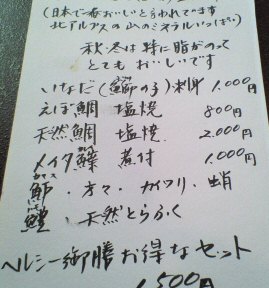 (日本で一番おいしいと言われています
北アルプスの山のミネラルいっぱい)
秋・冬は特に脂がのって
とてもおいしいです
いなだ(鰤の子)刺身 1.000円
えぼ鯛 塩焼 800円
天然鯛 塩焼 2.000円
メイタ鰈 煮付 1.000円
鰤・方々・カイワリ・蛸
鱧・天然とらふぐ
ヘルシー御膳お得なセット
1.500円